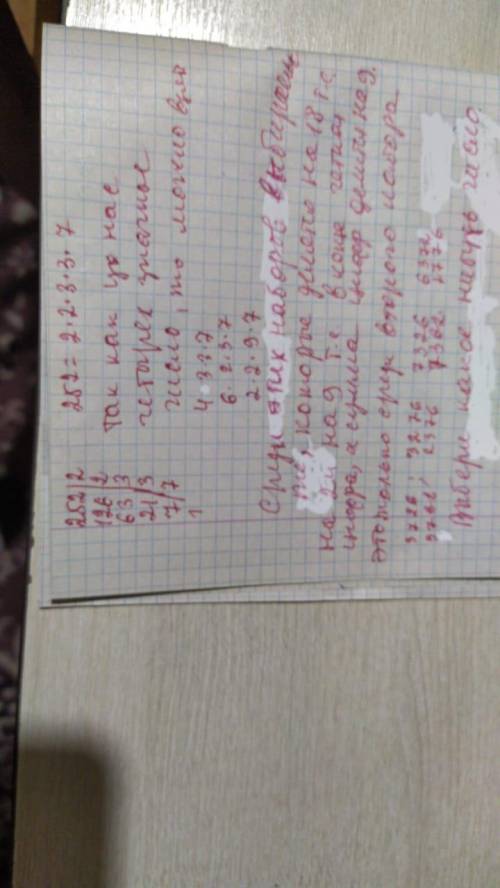 252|2
126|2
63|3
21|3
7|7
1
252 = 2·2·3·3·7
Так как у нас
четырех значное
число, то можно
4·3·3·7
6·2·3·7
2·2·9·7
Среди этих наборов выбираем
те, которые делятся на 18 т.е.
на 2 и на 9 т.е в конце четная
цифра, а сумма цифр делится на 9.
это только среди второго набора
3726, 3276 7326 6372
2376 2736
Выбери какое нибудь число.